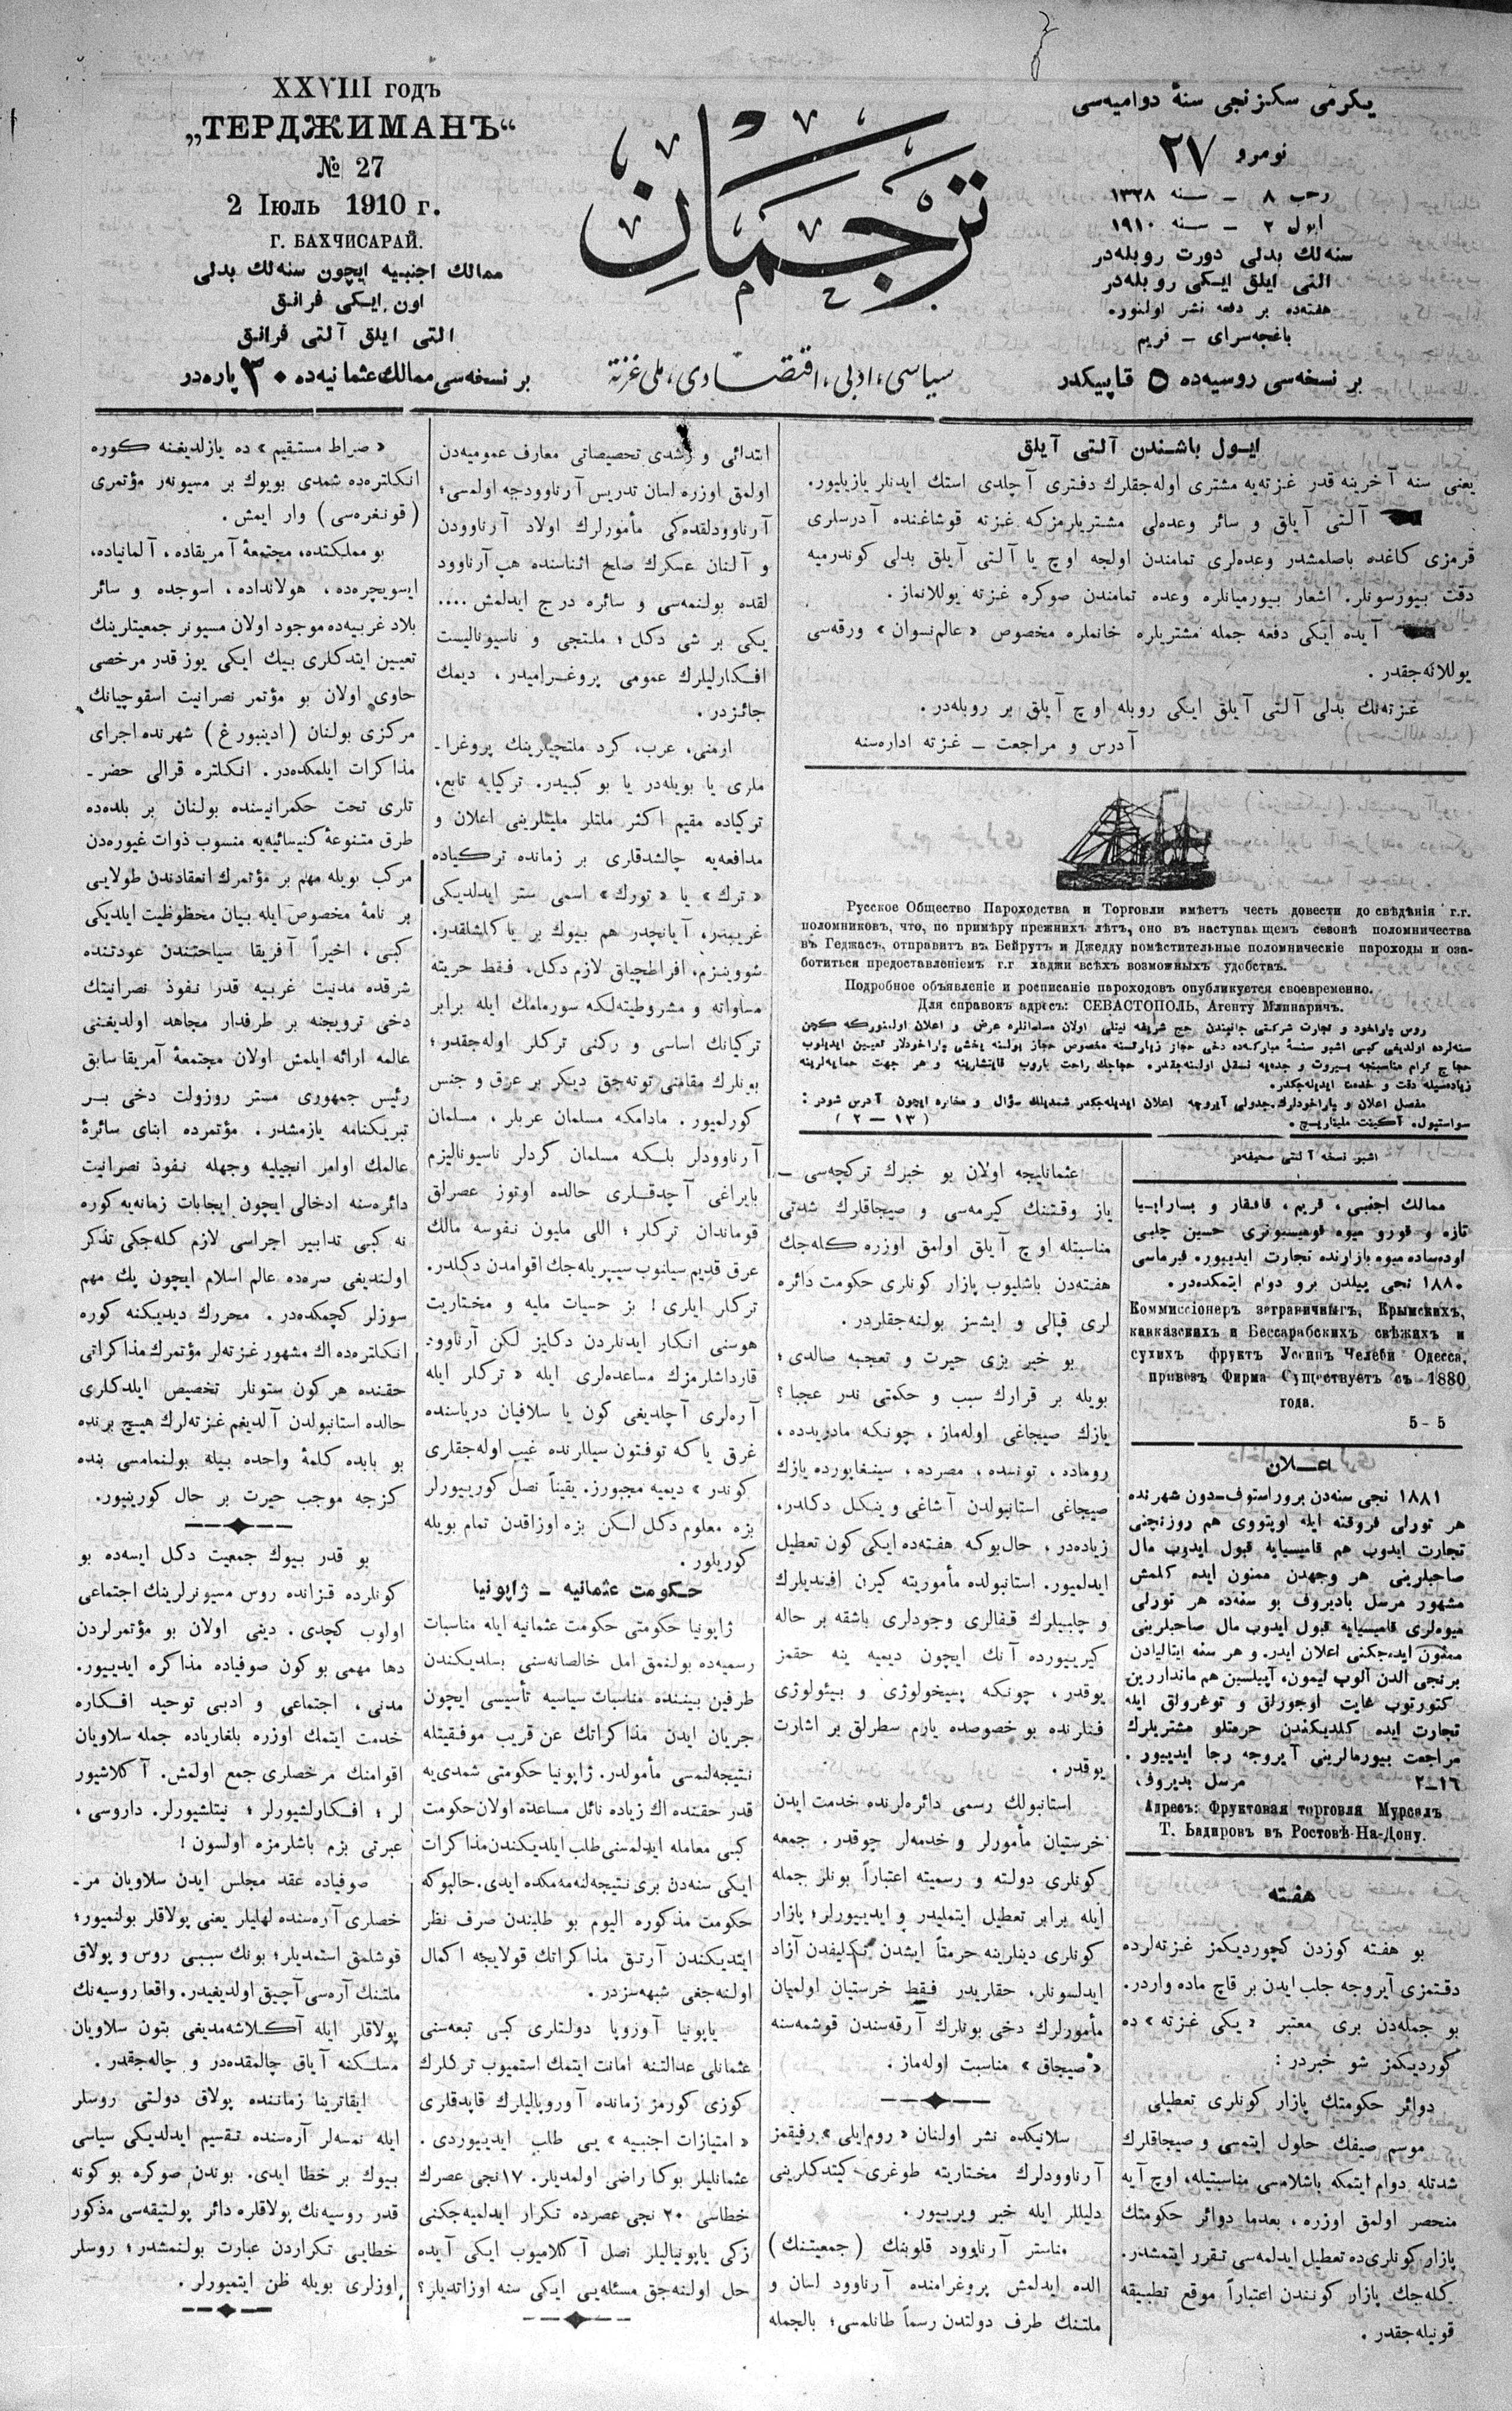 XXVIII годъ
„ТЕРДЖИМАНЪ“
№ 27
2 Іюль 1910 г.
Г. БАХЧИСАРАЙ.
ممالك اجنبيه ايچون سنه‌لك بدلى
اون ايكى فرانق
التى ايلق آلتى فرانق
بر نسخه‌سى ممالك عثمانيه‌ده ٣٠ پاره‌در
ترجمان
سياسى، ادبى، اقتصادى، ملى غزته
يكرمى سكزنجى سنهٔ دواميه‌سى
نومرو ٢٧
رجب ٨ – سنه ١٣٢٨
ايول ٢ – سنه ١٩١٠
سنه‌لك بدلى دورت روبله‌در
التى ايلق ايكى روبله‌در
هفته‌ده بر دفعه نشر اولنور.
باغچه‌سراى – قريم
بر نسخه‌سى روسيه‌ده ٥ قاپيكدر
ايول باشندن آلتى آيلق
يعنى سنه آخرينه قدر غزته‌يه مشترى اوله‌جقلرك دفترى آچلدى استك ايدنلر يازيليور.
آلتى آيلق و سائر وعده‌لى مشتريلرمزكه غزته قوشاغنده آدرسلرى
قرمزى كاغده باصلمشدر وعده‌لرى تمامندن اولجه اوچ يا آلتى آيلق بدلى كوندرميه
دقت بيورسونلر. اشعار بيورميانلره وعده تمامندن صوكره غزته يوللانماز.
آيده ايكى دفعه جمله مشتريلره خانملره مخصوص «عالم نسوان» ورقه‌سى
يوللانه‌جقدر.
غزته‌نك بدلى آلتى آيلق ايكى روبله اوچ آيلق بر روبله‌در.
آدرس و مراجعت – غزته اداره‌سنه
Русское Общество Пароходства и Торговли имѣетъ честь довести до свѣдѣнія г.г.
поломниковъ, что, по примѣру прежнихъ лѣтъ, оно въ наступающемъ сезонѣ поломничества
въ Геджасъ, отправитъ въ Бейрутъ и Джедду помѣстительные поломническіе пароходы и оза-
ботиться предоставленіемъ г.г хаджи всѣхъ возможныхъ удобствъ.
Подробное объявленіе и росписаніе пароходовъ опубликуется своевременно.
Для справокъ адресъ: СЕВАСТОПОЛЬ, Агенту Млинаричъ.
روس پاراخود و تجارت شركتى جانبندن حج شريفه نيتلى اولان مسلمانلره عرض و اعلان اولنوركه كچن
سنه‌لرده اولديغى كبى اشبو سنهٔ مباركه‌ده دخى حجاز زيارتنه مخصوص حجاز يولنه يخشى پاراخودلار تعيين ايديلوب
حجاج كرام مناسبتجه بيروت و جده‌يه نقل اولنه‌جقدر.
زياده‌سيله دقت و خدمت ايديله‌جكدر.
(١٣ – ٢)
اشبو نسخه آلتى صحيفه‌در
ممالك اجنبى، قريم، قافقار و بسارابيا
تازه و قورو ميوه قوميسيونرى حسين چلبى
اوده‌ساده ميوه بازارنده تجارت ايدييور. فيرماسى
١٨٨٠ نجى ييلدن برو دوام ايتمكده‌در.
Коммиссіонеръ заграничныхъ, Крымскихъ,
кавказскихъ и Бессарабскихъ свѣжихъ и
сухихъ фруктъ Усеинъ Челеби Одесса,
привозъ Фирма Существуетъ съ 1880
года.
5 - 5
اعلان
١٨٨١ نجى سنه‌دن برو راستوف–دون شهرنده
هر تورلى فروقته ايله اوپتووى هم روزنچنى
تجارت ايدوب هم قاميسيايه قبول ايدوب مال
صاحبلرينى هر وجهدن ممنون ايده كلمش
مشهور مرسل باديروف بو سنه‌ده هر تورلى
ميوه‌لرى قاميسيايه قبول ايدوب مال صاحبلرينى
ممنون ايده‌جكنى اعلان ايدر. و هر سنه ايتاليادن
برنجى الدن آلوب ليمون، آپيلسين هم ماندارين
كتورتوب غايت اوجورلق و توغرولق ايله
تجارت ايده كلديكندن حرمتلو مشتريلرك
مراجعت بيورمالرينى آيروجه رجا ايدييور.
١٦–٢ مرسل بديروف،
Адресъ: Фруктовая торговля Мурсалъ
Т. Бадировъ въ Ростовѣ-На-Дону.
هفته
بو هفته كوزدن كچورديكمز غزته‌لرده
دقتمزى آيروجه جلب ايدن بر قاچ ماده واردر.
بو جمله‌دن برى معتبر «يكى غزته» ده
كورديكمز شو خبردر:
دوائر حكومتك پازار كونلرى تعطيلى
موسم صيفك حلول ايتمسى و صيجاقلرك
شدتله دوام ايتمكه باشلامسى مناسبتيله، اوچ آيه
منحصر اولمق اوزره، بعدما دوائر حكومتك
پازار كونلرى‌ده تعطيل ايدلمه‌سى تقرر ايتمشدر.
كله‌جك پازار كونندن اعتباراً موقع تطبيقه
قونيله‌جقدر.
عثمانليجه اولان بو خبرك تركچه‌سى –
ياز وقتنك كيرمه‌سى و صيجاقلرك شدتى
مناسبتله اوچ آيلق اولمق اوزره كله‌جك
هفته‌دن باشليوب پازار كونلرى حكومت دائره
لرى قپالى و ايشسز بولنه‌جقلردر.
بو خبر بزى حيرت و تعجبه صالدى؛
بويله بر قرارك سبب و حكمتى ندر عجبا؟
يازك صيجاغى اوله‌ماز، چونكه مادريدده،
روماده، تونسده، مصرده، سينغاپورده يازك
صيجاغى استانبولدن آشاغى و ينكل دكلدر،
زياده‌در، حال‌بوكه هفته‌ده ايكى كون تعطيل
ايدلميور. استانبولده مأموريته كيرن افنديلرك
و چلبيلرك قفالرى وجودلرى باشقه بر حاله
كيرييورده آنك ايچون ديميه ينه حقمز
يوقدر، چونكه پسيخولوژى و بيئولوژى
فنلرنده بو خصوصده يارم سطرلق بر اشارت
يوقدر.
استانبولك رسمى دائره‌لرنده خدمت ايدن
خرستيان مأمورلر و خدمه‌لر چوقدر. جمعه
كونلرى دولته و رسميته اعتباراً بونلر جمله
ايله برابر تعطيل ايتمليدر و ايدييورلر؛ پازار
كونلرى دينلرينه حرمتاً ايشدن تكليفدن آزاد
ايدلسونلر، حقلريدر فقط خرستيان اولميان
مأمورلرك دخى بونلرك آرقه‌سندن قوشمه‌سنه
«صيجاق» مناسبت اوله‌ماز.
سلانيكده نشر اولنان «روم‌ايلى» رفيقمز
آرناوودلرك مختاريته طوغرى كيتدكلرينى
دليللر ايله خبر ويرييور.
مناستر آرناوود قلوبنك (جمعيتنك)
الده ايدلمش پروغرامنده آرناوود لسان و
ملتنك طرف دولتدن رسماً طانلمسى؛ بالجمله
ابتدائى و رشدى تحصيصاتى معارف عموميه‌دن
اولمق اوزره لسان تدريس آرناوودجه اولمسى؛
آرناوودلقده‌كى مأمورلرك اولاد آرناوودن
و آلنان عسكرك صلح اثناسنده هپ آرناوود
لقده بولنمه‌سى و سائره درج ايدلمش....
يكى بر شى دكل؛ ملتجى و ناسيوناليست
افكارليلرك عمومى پروغراميدر، ديمك
جائزدر.
ارمنى، عرب، كرد ملتجيلرينك پروغرا-
ملرى يا بويله‌در يا بو كبيدر. تركيايه تابع،
تركياده مقيم اكثر ملتلر مليتلرينى اعلان و
مدافعه‌يه چالشدقلرى بر زمانده تركياده
«ترك» يا «تورك» اسمى ستر ايدلديكى
غريبدر، آيانچدر هم بيوك بر ياكلشلقدر.
شووينزم، افراطچيلق لازم دكل، فقط حريته
مساواته و مشروطيته‌لكه سورمامك ايله برابر
تركيانك اساسى و ركنى تركلر اوله‌جقدو؛
بونلرك مقامنى توته‌جق ديكر بر عرق و جنس
كورلميور. مادامكه مسلمان عربلر، مسلمان
آرناوودلر بلكه مسلمان كردلر ناسيوناليزم
بايراغى آچدقلرى حالده اوتوز عصرلق
قوماندان تركلر؛ اللى مليون نفوسه مالك
عرق قديم سيلنوب سيپريله‌جك اقوامدن دكلدر.
تركلر ايلرى! بز حسيات مليه و مختاريت
هوسنى انكار ايدنلردن دكليز لكن آرناوود
قارداشلرمزك مساعده‌لرى ايله «تركلر ايله
آره‌لرى آچلديغى كون يا سلافيان درياسنده
غرق يا كه توفتون سيللرنده غيب اوله‌جقلرى
كوندر» ديميه مجبورز. يقيناً نصل كورييورلر
بزه معلوم دكل لكن بزه اوزاقدن تمام بويله
كوريلور.
حكومت عثمانيه – ژاپونيا
ژاپونيا حكومتى حكومت عثمانيه ايله مناسبات
رسميه‌ده بولنمق امل خالصانه‌سنى بسلديكندن
طرفين بيننده مناسبات سياسيه تأسيسى ايچون
جريان ايدن مذاكراتك عن قريب موفقيتله
نتيجه‌لنمسى مأمولدر. ژاپونيا حكومتى شمدى‌يه
قدر حقنده اك زياده نائل مساعده اولان حكومت
كبى معامله ايدلمسنى طلب ايلديكندن مذاكرات
ايكى سنه‌دن برى نتيجه‌لنه‌مه‌مكده ايدى. حالبوكه
حكومت مذكوره اليوم بو طلبندن صرف نظر
ايتديكندن آرتق مذاكراتك قولايجه اكمال
اولنه‌جغى شبهه‌سزدر.
ياپونيا آوروپا دولتلرى كبى تبعه‌سنى
عثمانلى عدالتنه امانت ايتمك استميوب تركلرك
كوزى كورمز زمانده آوروپاليلرك قاپدقلرى
«امتيازات اجنبيه» يى طلب ايدييوردى.
عثمانليلر بوكا راضى اولمديلر. ١٧ نجى عصرك
خطاسى ٢٠ نجى عصرده تكرار ايدلميه‌جكنى
زكى ياپونياليلر نصل آكلاميوب ايكى آيده
حل اولنه‌جق مسئله‌يى ايكى سنه اوزاتديلر؟
«صراط مستقيم» ده يازلديغنه كوره
انكلتره‌ده شمدى بويوك بر مسيونر مؤتمرى
(قونغره‌سى) وار ايمش.
بو مملكتده، مجتمعهٔ آمريقاده، آلمانياده،
ايسويچره‌ده، هولانداده، اسوجده و سائر
بلاد غربيه‌ده موجود اولان مسيونر جمعيتلرينك
تعيين ايتدكلرى بيك ايكى يوز قدر مرخصى
حاوى اولان بو مؤتمر نصرانيت اسقوچيانك
مركزى بولنان (ادينبورغ) شهرنده اجراى
مذاكرات ايلمكده‌در. انكلتره قرالى حضر-
تلرى تحت حكمرانيسنده بولنان بر بلده‌ده
طرق متنوعهٔ كنيسائيه‌يه منسوب ذوات غيوره‌دن
مركب بويله مهم بر مؤتمرك انعقادندن طولايى
بر نامهٔ مخصوص ايله بيان محظوظيت ايلديكى
كبى، اخيراً آفريقا سياحتندن عودتنده
شرقده مدنيت غربيه قدر نفوذ نصرانيتك
دخى ترويجنه بر طرفدار مجاهد اولديغنى
عالمه ارائه ايلمش اولان مجتمعهٔ آمريقا سابق
رئيس جمهورى مستر روزولت دخى بر
تبريكنامه يازمشدر. مؤتمرده ابناى سائرهٔ
عالمك اوامر انجيليه وجهله نفوذ نصرانيت
دائره‌سنه ادخالى ايچون ايجابات زمانه‌يه كوره
نه كبى تدابير اجراسى لازم كله‌جكى تذكر
اولنديغى صره‌ده عالم اسلام ايچون پك مهم
سوزلر كچمكده‌در. محررك ديديكنه كوره
انكلتره‌ده اك مشهور غزته‌لر مؤتمرك مذاكراتى
حقنده هر كون ستونلر تخصيص ايلدكلرى
حالده استانبولدن آلديغم غزته‌لرك هيچ برنده
بو بابده كلمهٔ واحده بيله بولنمامسى بنده
كزجه موجب حيرت بر حال كورينيور.
بو قدر بيوك جمعيت دكل ايسه‌ده بو
كونلرده قزانده روس مسيونرلرينك اجتماعى
اولوب كچدى. دينى اولان بو مؤتمرلردن
دها مهمى بو كون صوفياده مذاكره ايدييور.
مدنى، اجتماعى و ادبى توحيد افكاره
خدمت ايتمك اوزره بلغارياده جمله سلاويان
اقوامنك مرخصلرى جمع اولمش. آكلاشيور
لر؛ افكارلشيورلر؛ نيتلشيورلر. داروسى،
عبرتى بزم باشلرمزه اولسون!
صوفياده عقد مجلس ايدن سلاويان مر-
خصلرى آره‌سنده لهليلر يعنى پولاقلر بولنميور؛
قوشلمق استمديلر؛ بونك سببى روس و پولاق
ملتنك آره‌سى آچيق اولديغيدر. واقعا روسيه‌نك
پولاقلر ايله آكلاشه‌مديغى بتون سلاويان
مسلكنه آياق چالمقده‌در و چاله‌جقدر.
ايقاترينا زماننده پولاق دولتى روسلر
ايله نمسه‌لر آره‌سنده تقسيم ايدلديكى سياسى
بيوك بر خطا ايدى. بوندن صوكره بو كونه
قدر روسيه‌نك پولاقلره دائر پولتيقه‌سى مذكور
خطايى تكراردن عبارت بولنمشدر؛ روسلر
اوزلرى بويله ظن ايتميورلر.